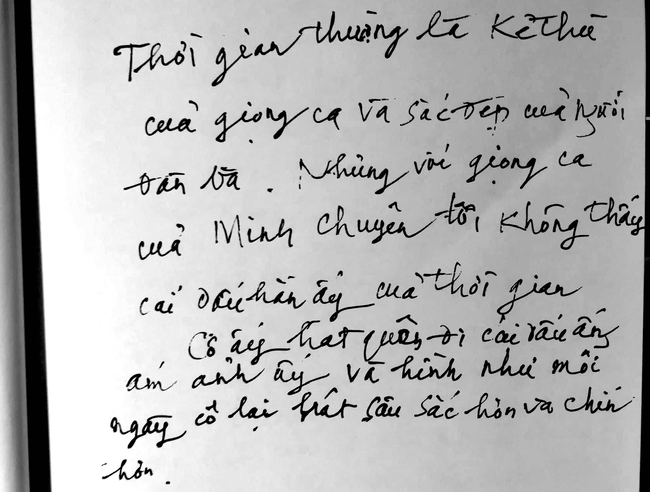 Thời gian thường là kẻ thù
của giọng ca và sắc đẹp của người
đàn bà. Nhưng với giọng ca
của Minh Chuyên tôi không thấy
cái dấu hằn ấy của thời gian
Cô ấy hát quên đi cái dấu ấn
ám ảnh ấy và hình như mỗi
ngày cô lại hát sâu sắc hơn và chín
hơn.